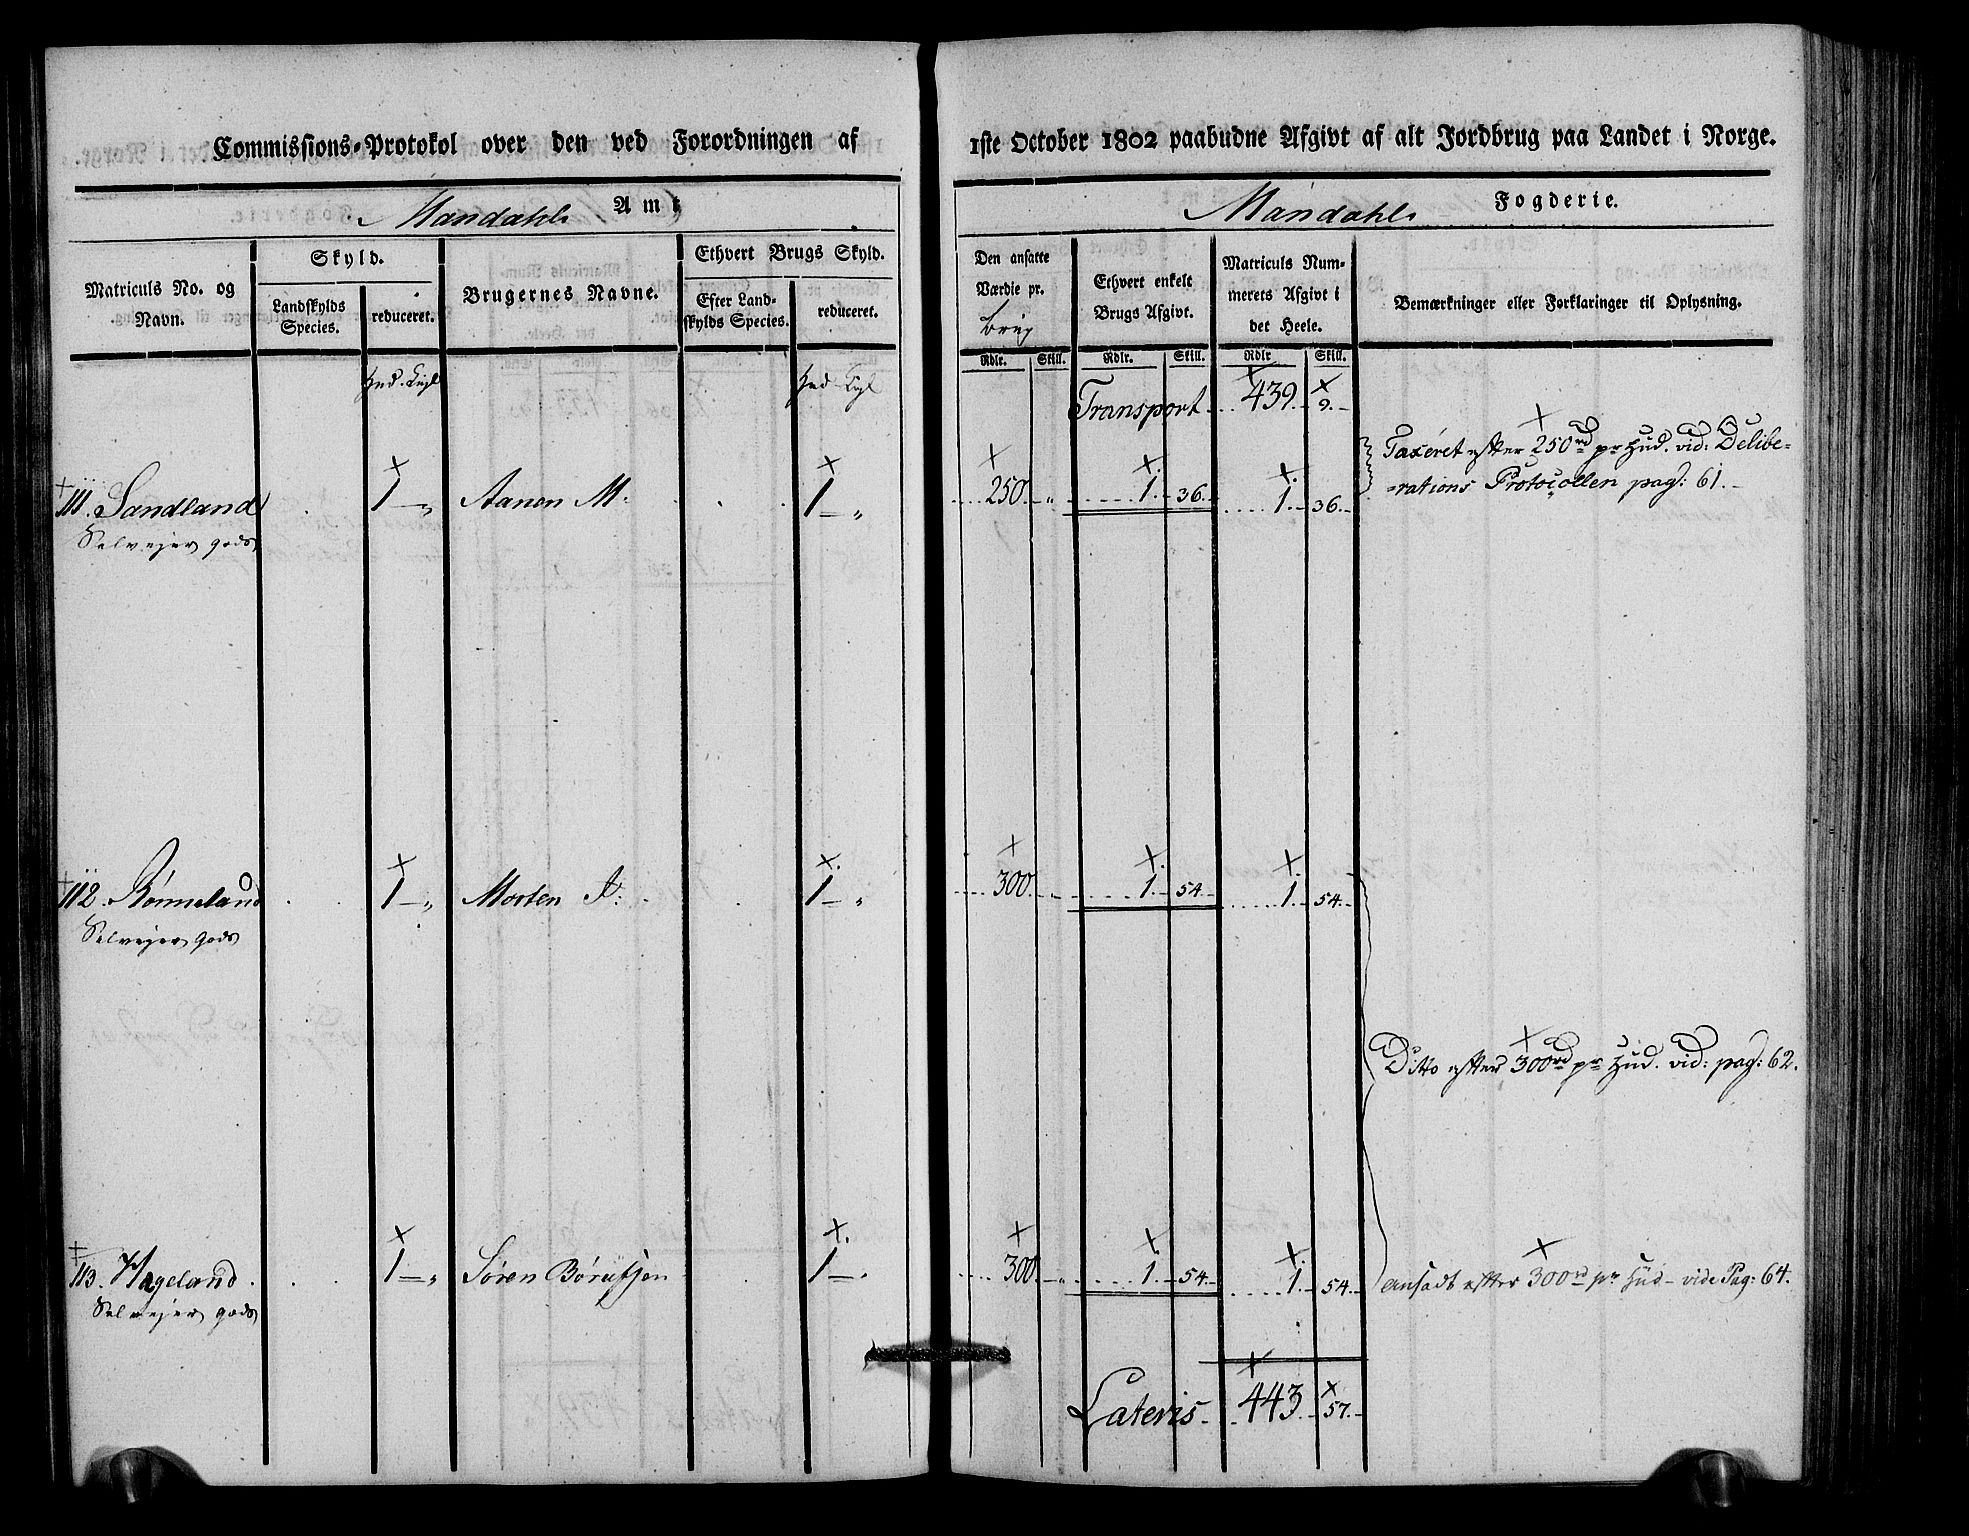 Commissions-Protokol over den ved Forordningen af
Mandahls Amt
Matriculs No. og Navn.
Skyld.
Landskylds Species.
reduceret.
Brugernes Navne.
Ethvert Brugs Skyld.
Efter Landskylds Species.
reduceret.
Hud. Engl
Hud Engl
111. Sandland 1 — „ Aanen M: 1 — „
Selvejer gods
112. Rønneland 1 — „ Morten A: 1 — „
Selvejer Gods
113. Hageland 1 — „ Søren Børufsen 1 — „
Selvejer gods
1ste October 1802 paabudne Afgivt af alt Jordbrug paa Landet i Norge.
Mandahls Fogderie.
Den ansatte Værdie pr. brug
Ethvert enkelt Brugs Afgivt.
Matriculs Nummerets Afgivt i det Heele.
Bemærkninger eller Forklaringer til Oplysning.
Rdlr. Skill. Rdlr. Skill. Rdlr Skill.
Transport 439. 9.
Taxeret efter 250rd pr Hud. vid: Delibe=
250. „ 1. 36. 1. 36. =rations Protocollen pag: 61.
300. 1. 54 1. 54.
Ditto efter 300rd pr Hud. vid: pag: 62.
300. „ 1. 54. 1. 54. ansadt efter 300rd pr Hud - vide Pag: 64.
Lateris 443. 57.